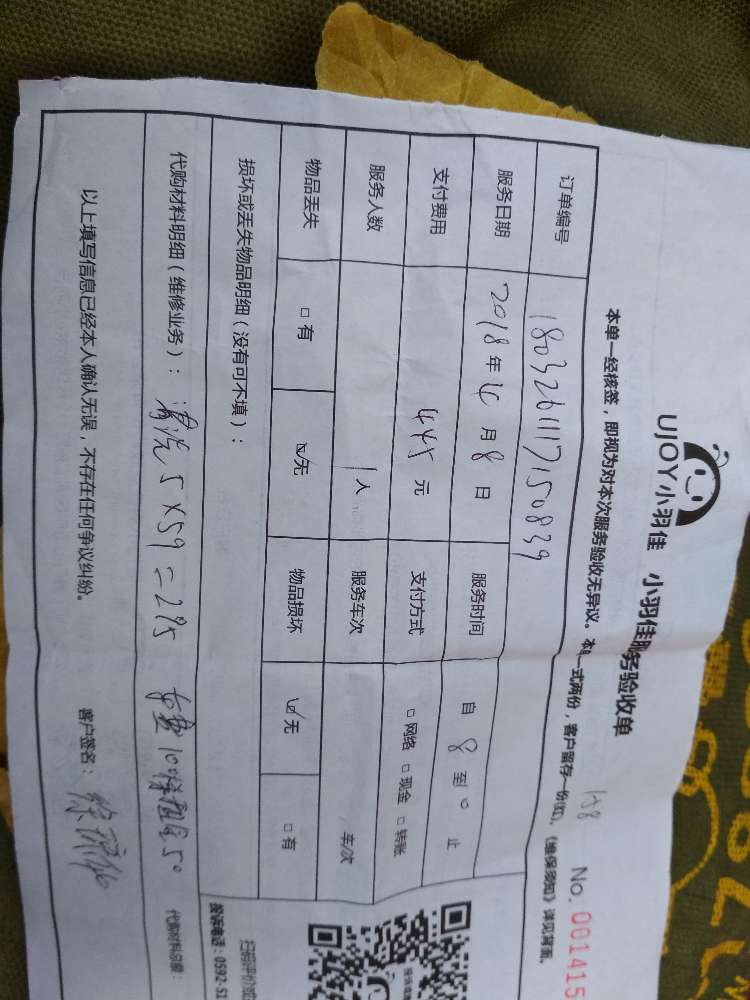 UJOY小羽佳 小羽佳服务验收单
158 No. 001415
本单一经核签，即视为对本次服务验收无异议。本单一式两份，客户留存一份(红)，《维保须知》详见背面。
订单编号 1803261117150839
服务日期 2018年4月8日 服务时间 自8至10止
支付费用 445元 支付方式 □网络 □现金 □转账
服务人数 1人 服务车次 车/次
物品丢失 □有 ☑无 物品损坏 ☑无 □有
损坏或丢失物品明细（没有可不填）：
代购材料明细（维修业务）： 清洗 5×59=295 代购材料总额：
以上填写信息已经本人确认无误，不存在任何争议纠纷。 客户签名：
扫码评价
投诉电话：0592-51